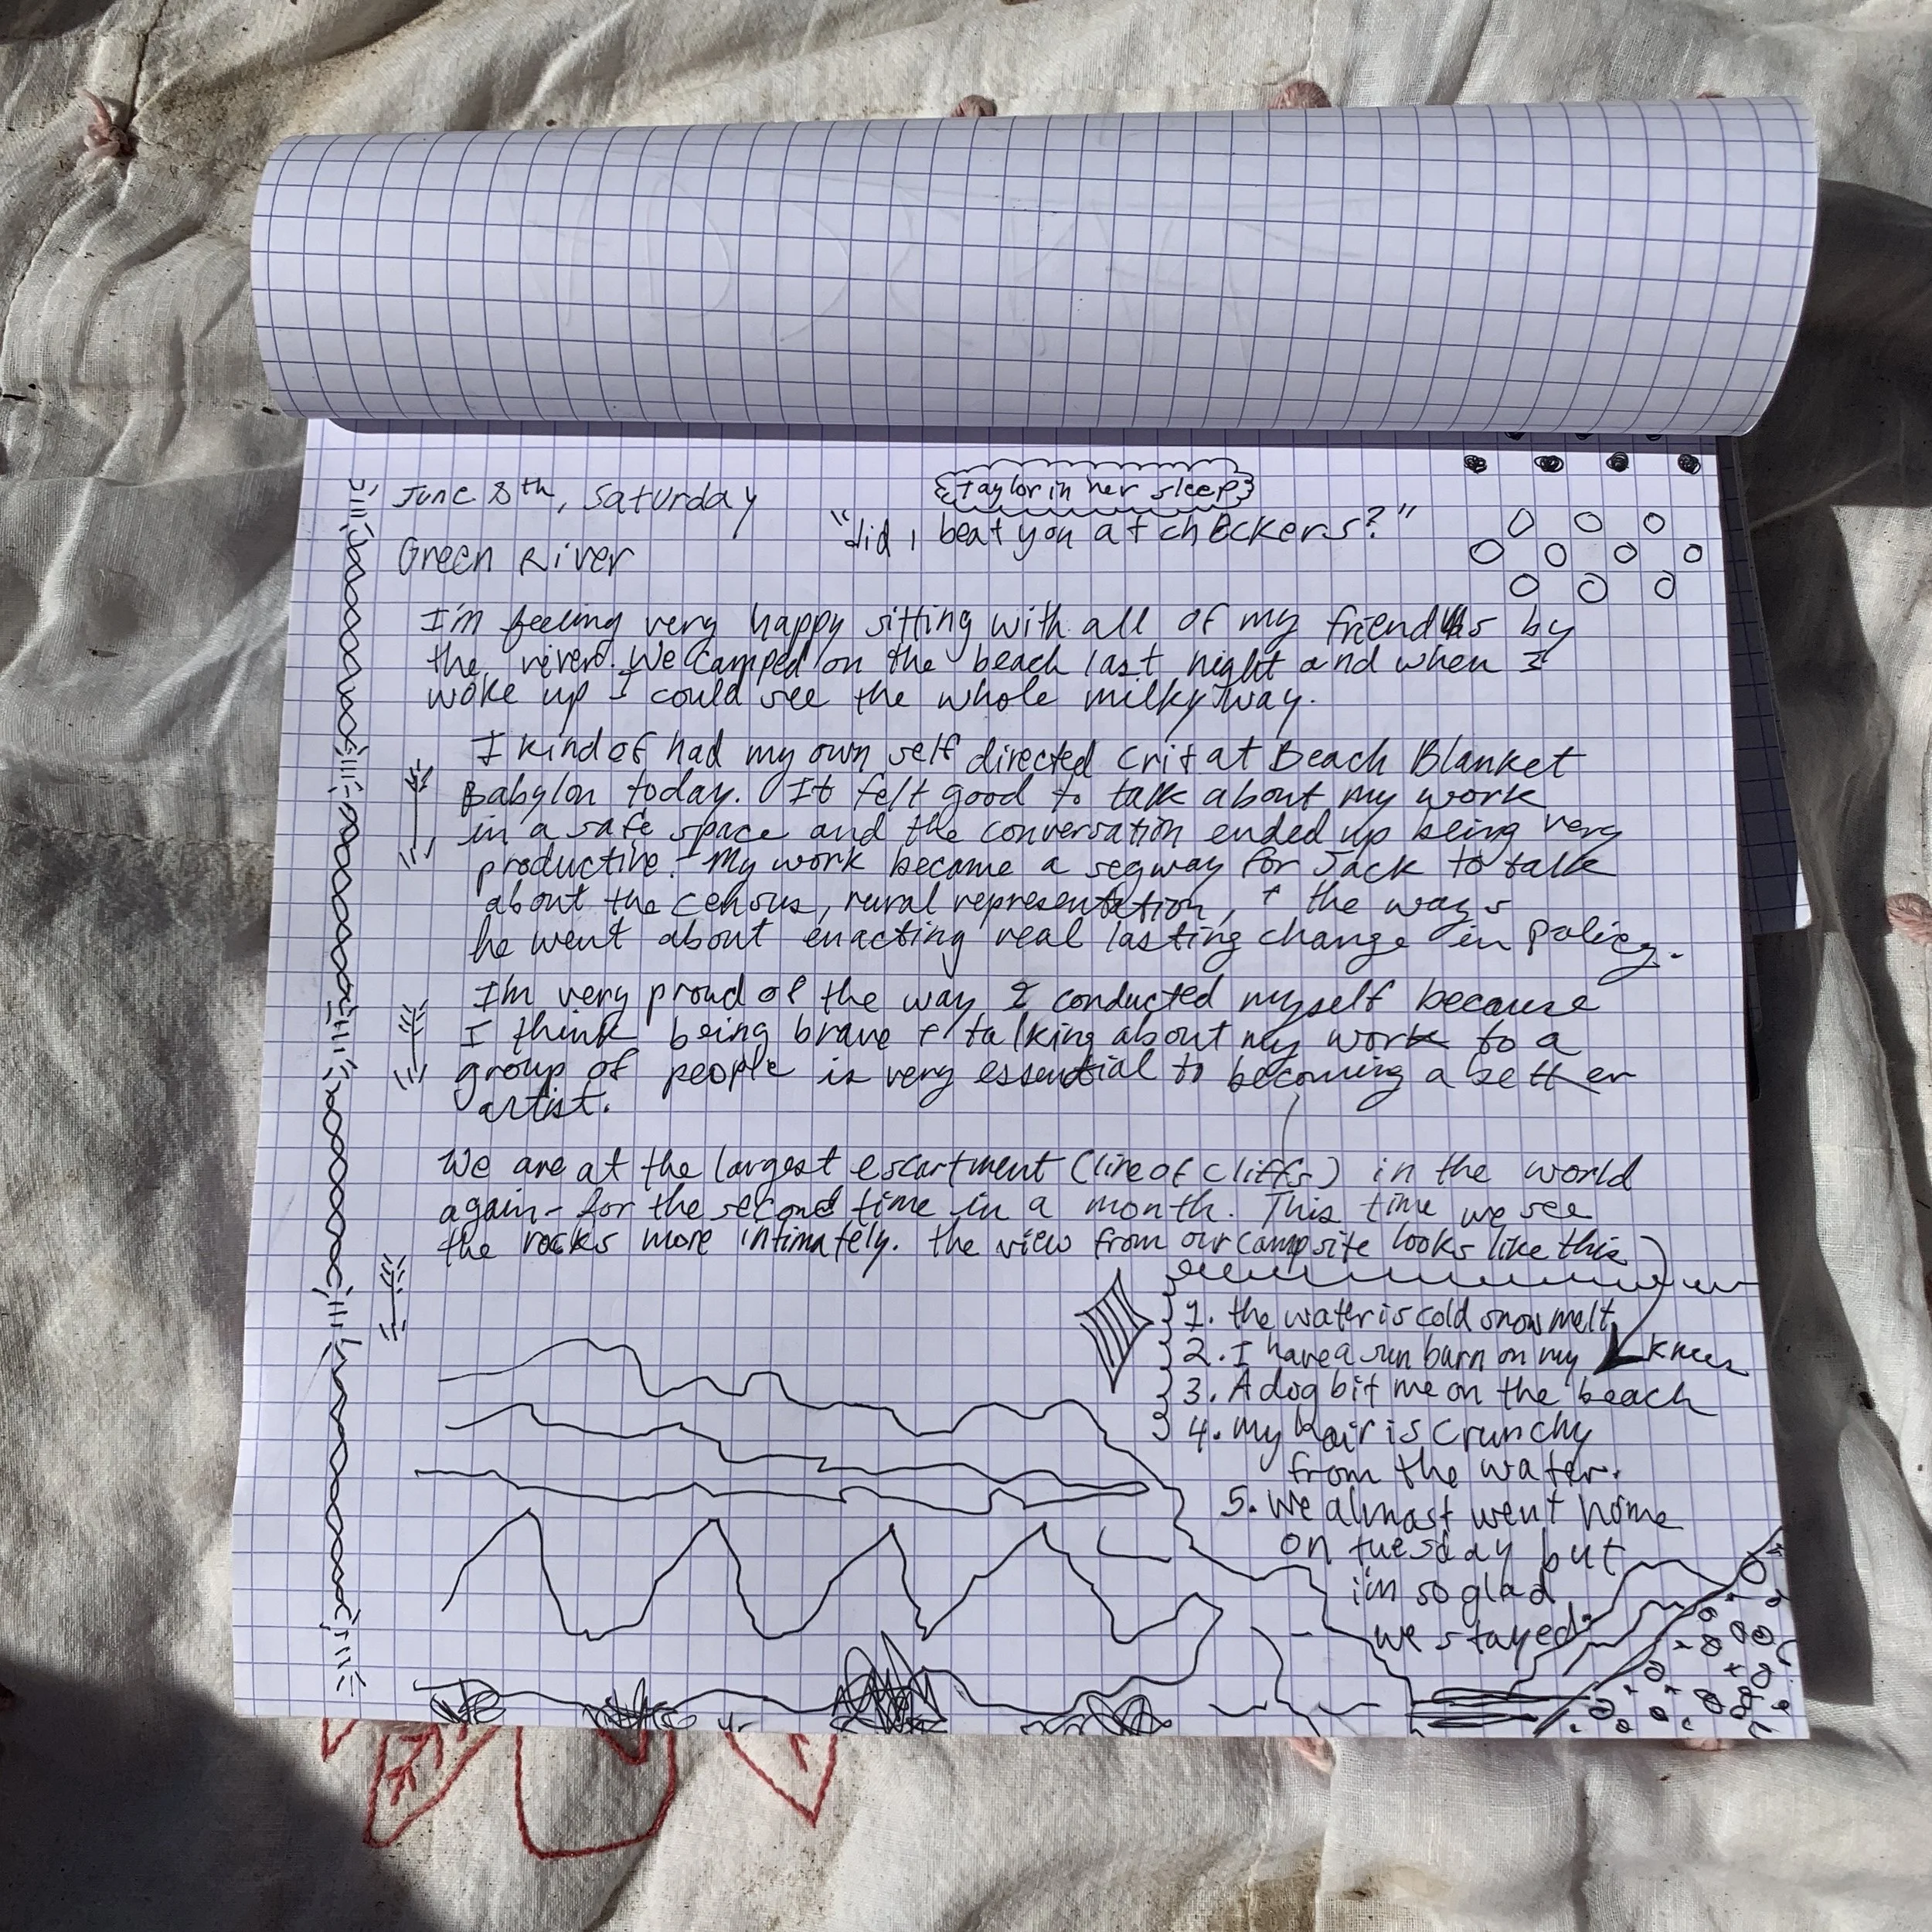 June 8th, Saturday
Taylor in her sleep
"did I beat you at checkers?"
Green River
I'm feeling very happy sitting with all of my friends by
the river. We camped on the beach last night and when I
woke up I could see the whole milky way.
I kind of had my own self directed crit at Beach Blanket
Babylon today. It felt good to talk about my work
in a safe space and the conversation ended up being very
productive. My work became a segway for Jack to talk
about the census, rural representation, + the ways
he went about enacting real lasting change in policy.
I'm very proud of the way I conducted myself because
I think being brave + talking about my work to a
group of people is very essential to becoming a better
artist.
We are at the largest escartment (line of cliffs) in the world
again - for the second time in a month. This time we see
the rocks more intimately. the view from our campsite looks like this
1. the water is cold snow melt
2. I have a sun burn on my knees
3. A dog bit me on the beach
4. my hair is crunchy
from the water.
5. we almost went home
on tuesday but
i'm so glad
we stayed.